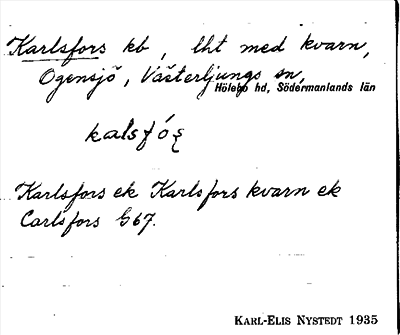 Karlsfors kb, lht med kvarn,
Ogensjö, Västerljungs sn,
Hölebo hd, Södermanlands län
kalsfó
Karlsfors ek Karlsfors kvarn ek
Carlsfors G67.
KARL-ELIS NYSTEDT 1935